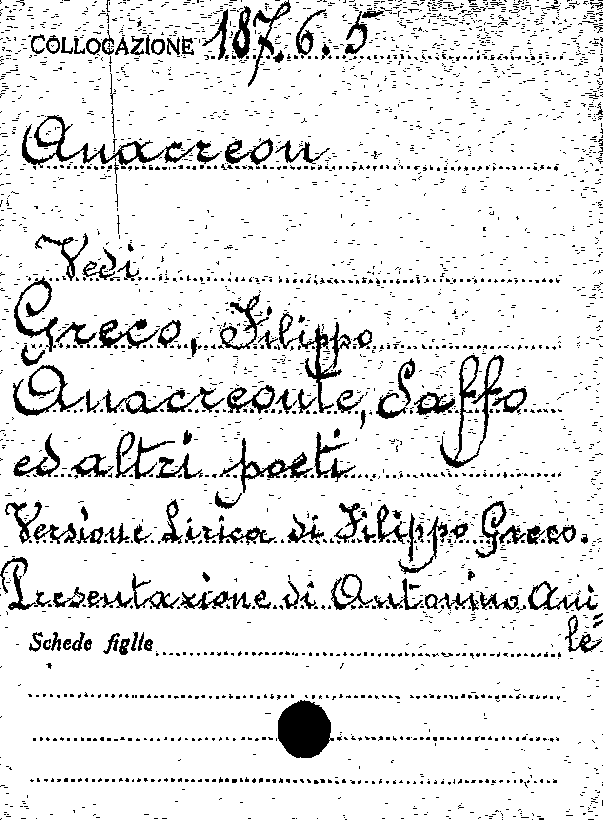 COLLOCAZIONE 187.6.5
Anacreon
Vedi
Greco, Filippo
Anacreonte, Saffo
ed altri poeti
Versione Lirica di Filippo Greco.
Presentazione di Antonino Ani
le=
Schede figlie